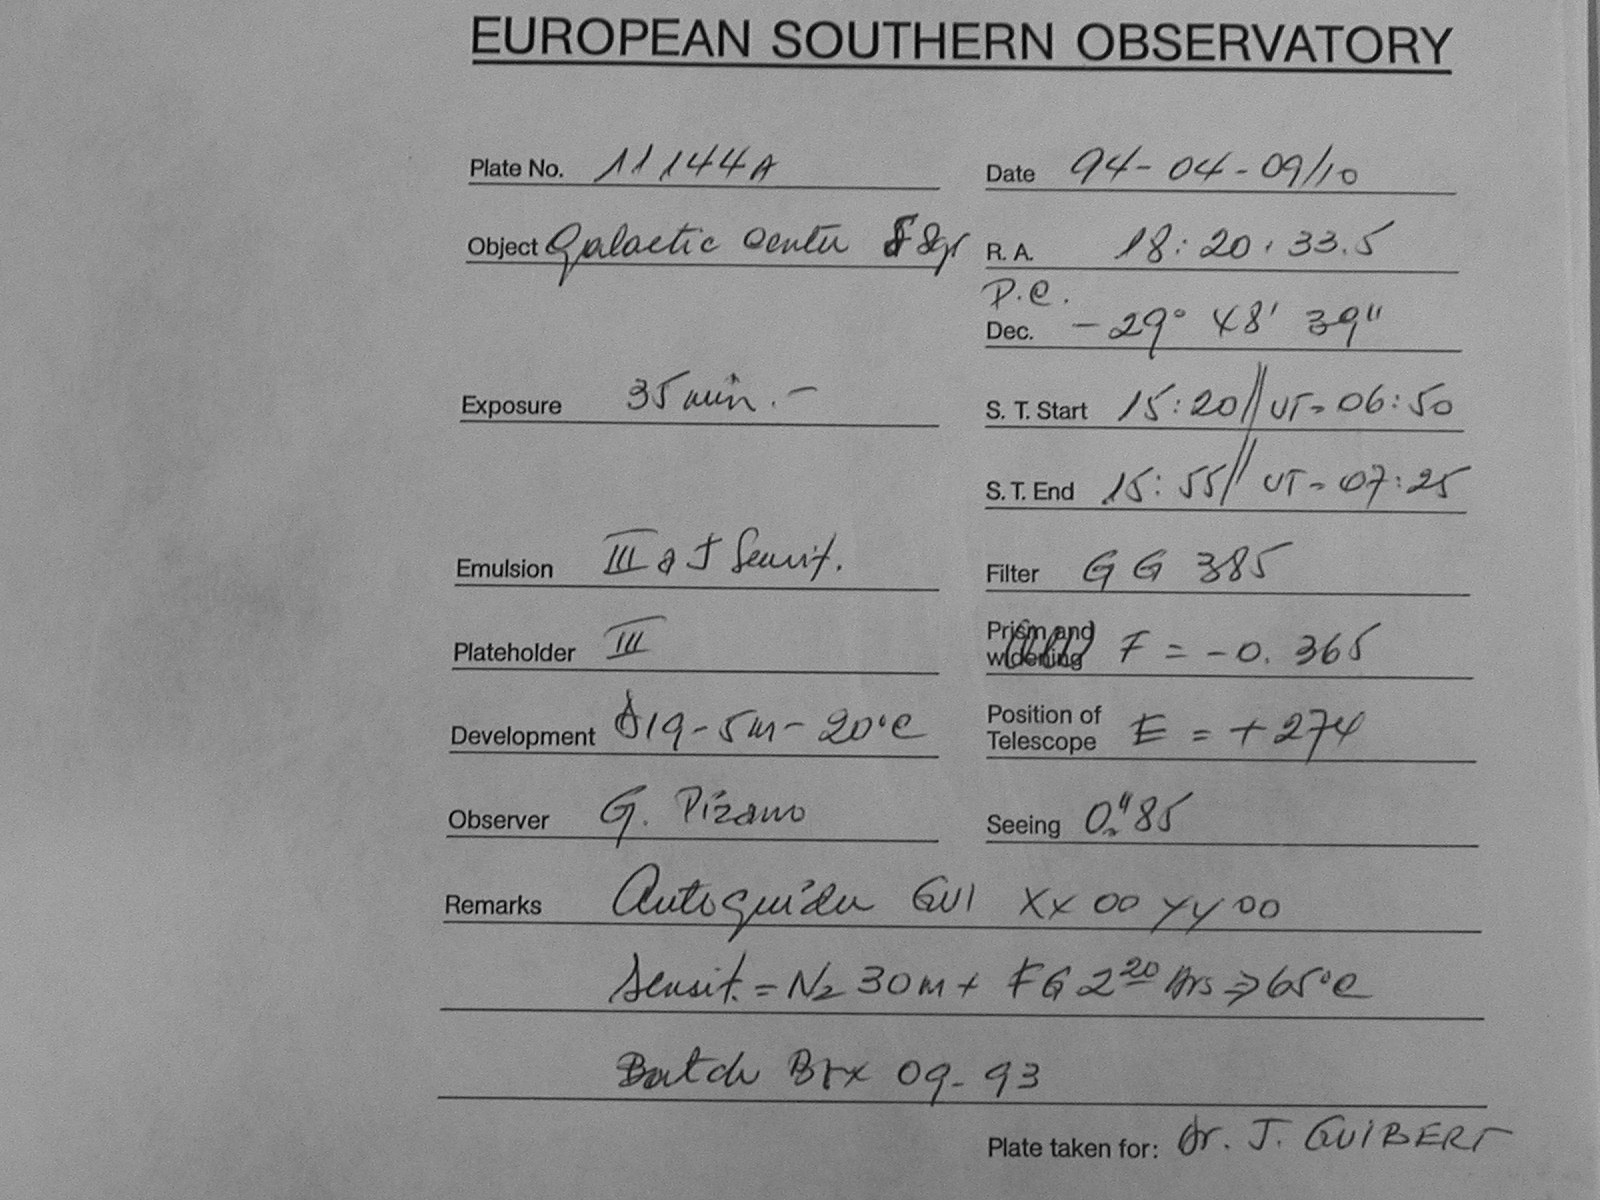 EUROPEAN SOUTHERN OBSERVATORY
Plate No. 11144A
Date 94-04-09/10
Object Galactic Center 8 Sgr
R. A. 18:20:33.5
P.C.
Dec. -29° 48' 39"
Exposure 35 min.-
S. T. Start 15:20 // UT= 06:50
S. T. End 15:55 // UT= 07:25
Emulsion III a J Sensit.
Filter GG 385
Plateholder III
Prism and widening F = -0.365
Development D19-5m-20°C
Position of Telescope E = +274
Observer G. Pizarro
Seeing 0."85
Remarks Autoguider GUI XX 00 YY 00
Sensit. = N2 30m + FG 2 20 hrs => 65°C
Batch 09-93
Plate taken for: Dr. J. GUIBERT